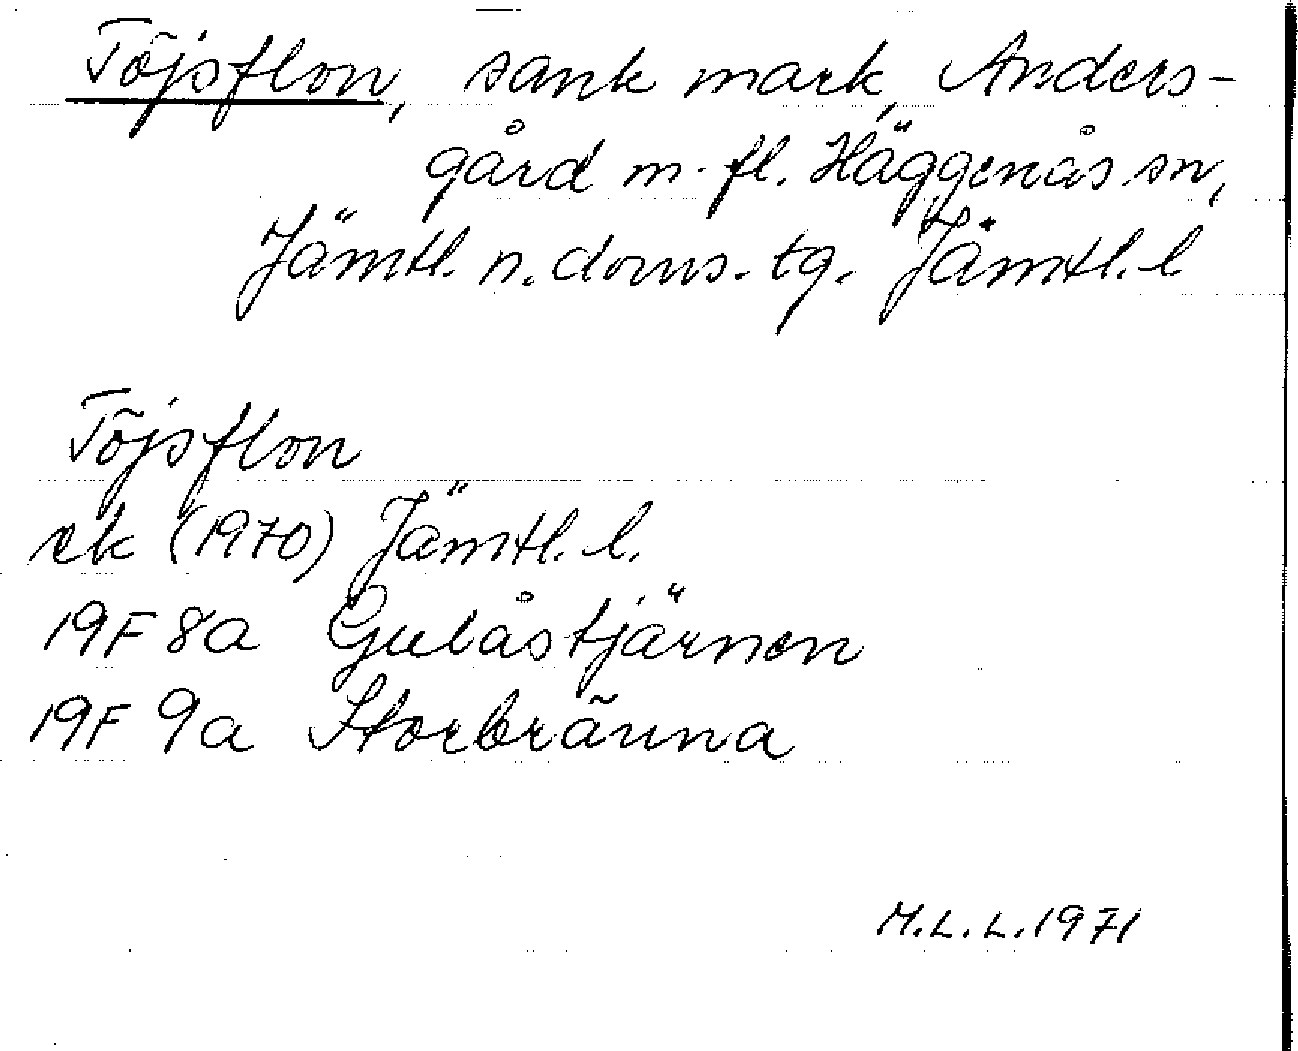 Töjsflon, sank mark, Anders-
gård m. fl. Häggenås sn,
Jämtl. n. doms. tg. Jämtl. l
Töjsflon
ek (1970) Jämtl. l.
19F 8a Gulåstjärnen
19F 9a Storbränna
M.L.L. 1971